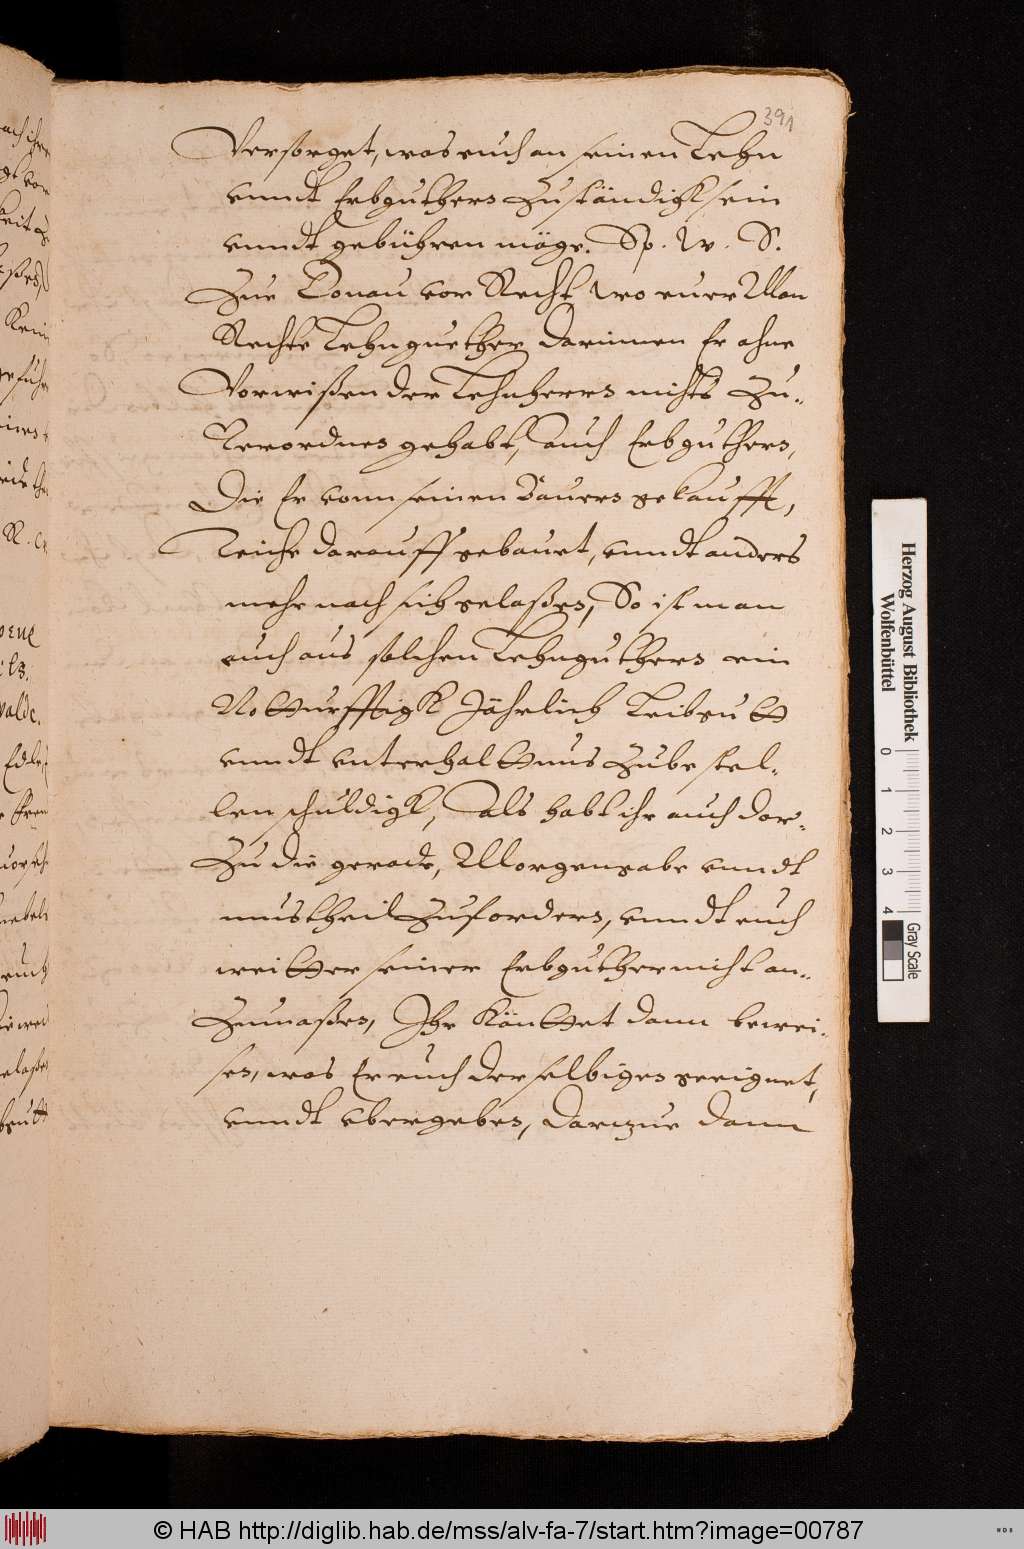 391
Versorget, was euch an seinen Lehn
vnndt Erbguthern Zuständigk sein
vnndt gebühren möge. Sp. W. S.
Zue Donau vor Recht, Wo euer Man
Rechte Lehnguether, darinnen Er ohne
Vorwißen der Lehnherrn nichts Zu-
Verordnen gehabt, auch Erbguthern,
Die Er vonn seinen Bauern gekaufft,
Teiche darauff gebauet, vnndt anders
mehr nach sich gelaßen, So ist man
euch aus solchen Lehnguthern ein
Notturfftigk Jährlich Leibgutt
vnndt vnterhalttnus Zubestel-
len schuldigk, Als habt ihr auch dar-
Zu die gerade, Morgengabe vnndt
mustheil Zufordern, vnndt euch
weitter seiner Erbguther nicht an-
Zumaßen, Ihr Könttet dann bewei-
sen, was Er euch derselbigen geeignet,
vnndt vbergeben, darzue dann
Herzog August Bibliothek
Wolfenbüttel
0 1 2 3 4
Gray Scale
© HAB http://diglib.hab.de/mss/alv-fa-7/start.htm?image=00787